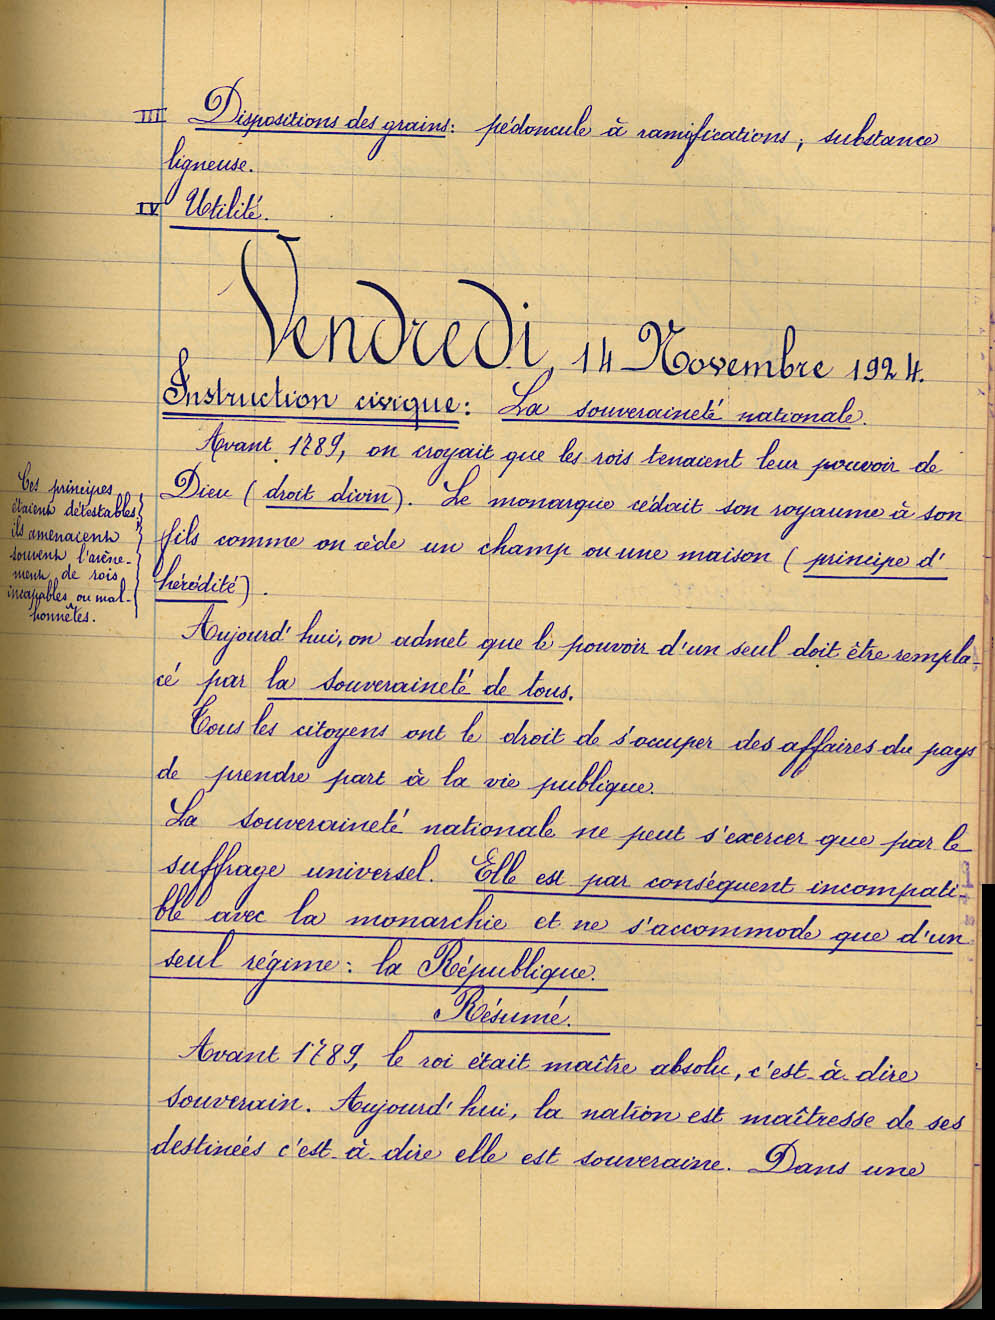 III Dispositions des grains : pédoncule à ramifications ; substance
ligneuse.
IV Utilité.
Vendredi, 14 Novembre 1924.
Instruction civique : La souveraineté nationale.
Avant 1789, on croyait que les rois tenaient leur pouvoir de
Dieu (droit divin). Le monarque cédait son royaume à son
fils comme on cède un champ ou une maison (principe d'
hérédité).
Ces principes
étaient détestables,
ils amenaient
souvent l'avène-
ment de rois
incapables ou mal-
honnêtes.
Aujourd'hui, on admet que le pouvoir d'un seul doit être rempla-
cé par la souveraineté de tous.
Tous les citoyens ont le droit de s'occuper des affaires du pays
de prendre part à la vie publique.
La souveraineté nationale ne peut s'exercer que par le
suffrage universel. Elle est par conséquent incompati-
ble avec la monarchie et ne s'accommode que d'un
seul régime : la République.
Résumé.
Avant 1789, le roi était maître absolu, c'est-à-dire
souverain. Aujourd'hui, la nation est maîtresse de ses
destinées c'est-à-dire elle est souveraine. Dans une